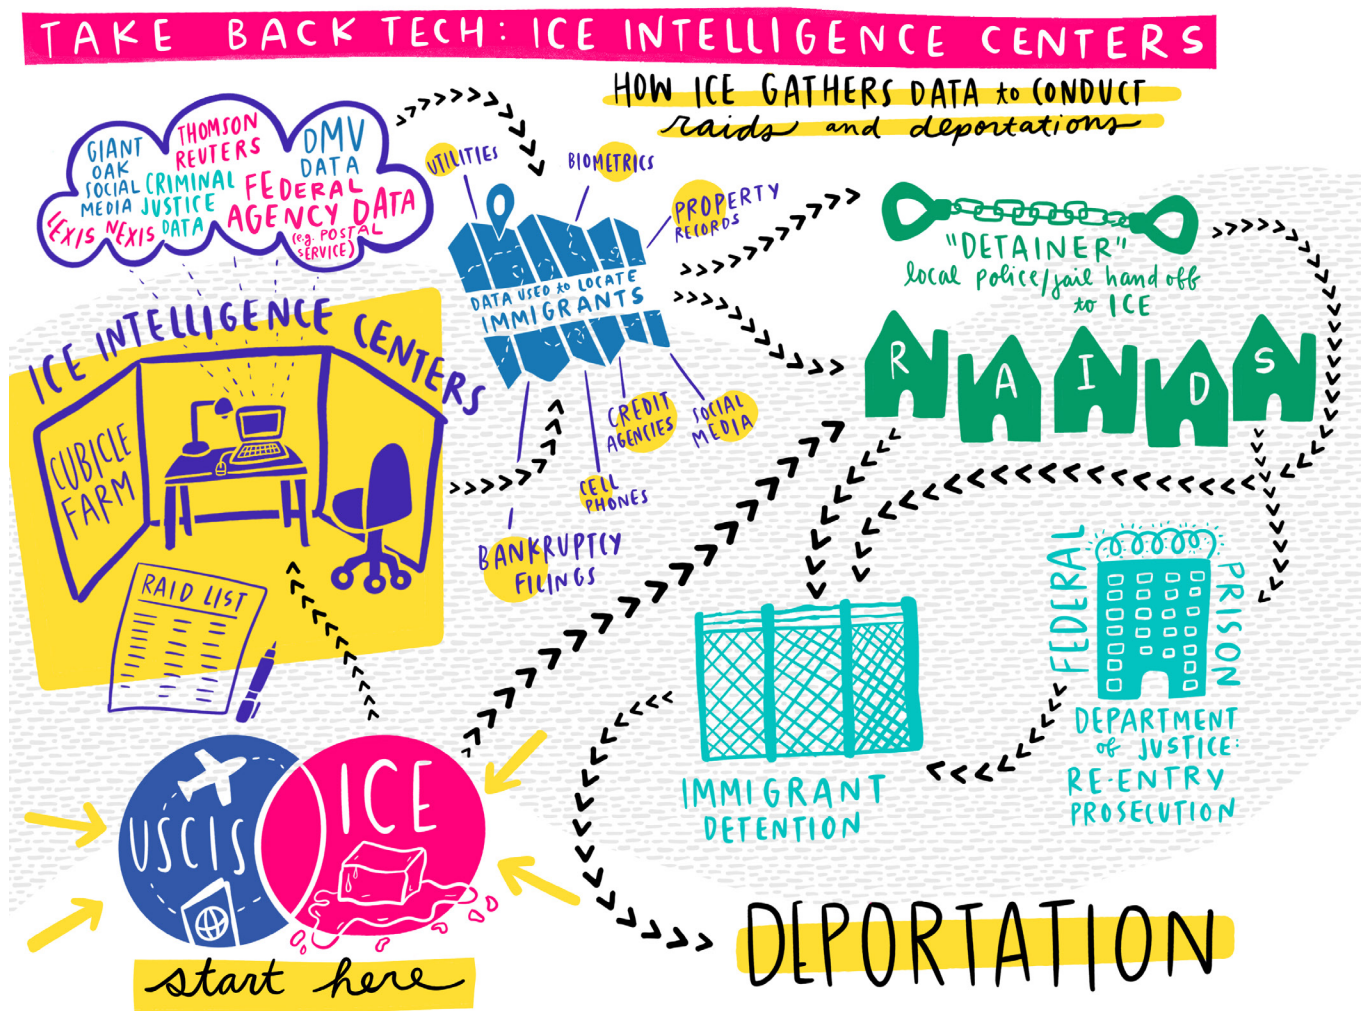 TAKE BACK TECH: ICE INTELLIGENCE CENTERS
HOW ICE GATHERS DATA to CONDUCT
raids and deportations
GIANT
OAK
SOCIAL
MEDIA
THOMSON
REUTERS
DMV
DATA
CRIMINAL
JUSTICE
DATA
FEDERAL
AGENCY DATA
(e.g. POSTAL
SERVICE)
LEXIS NEXIS
ICE INTELLIGENCE CENTERS
CUBICLE
FARM
RAID LIST
UTILITIES
BIOMETRICS
PROPERTY
RECORDS
DATA USED to LOCATE
IMMIGRANTS
CREDIT
AGENCIES
SOCIAL
MEDIA
CELL
PHONES
BANKRUPTCY
FILINGS
"DETAINER"
local police/jail hand off
to ICE
RAIDS
FEDERAL
PRISON
DEPARTMENT
of JUSTICE:
RE-ENTRY
PROSECUTION
IMMIGRANT
DETENTION
USCIS
ICE
start here
DEPORTATION